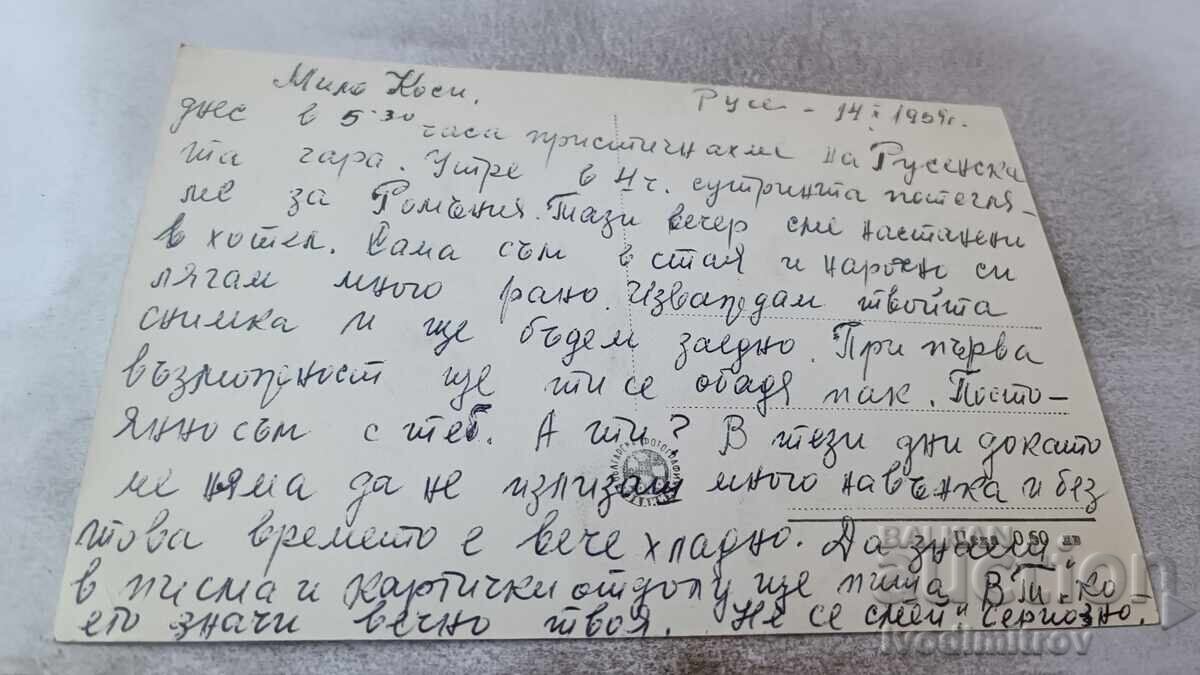 Мила Коси, Русе - 14 X 1959г.
днес в 5.30 часа пристигнахме на Русенска
та гара. Утре в 4 ч. сутринта потегля-
ме за Румъния. Тази вечер сме настанени
в хотел. Сама съм в стая и нарочно си
лягам много рано. Изваждам твойта
снимка и ще бъдем заедно. При първа
възможност ще ти се обадя пак. Посто-
янно съм с теб. А ти? В тези дни докато
ме няма да не излизаш много навънка и без
това времето е вече хладно. Да знаеш,
в писма и картички отдолу ще пиша В.Т. ко-
ето значи вечно твоя. Не се смей и сериозно.
БЪЛГАРСКА ФОТОГРАФИЯ
Цена 0,60 лв
BALKAN
auction
ivodimitrov